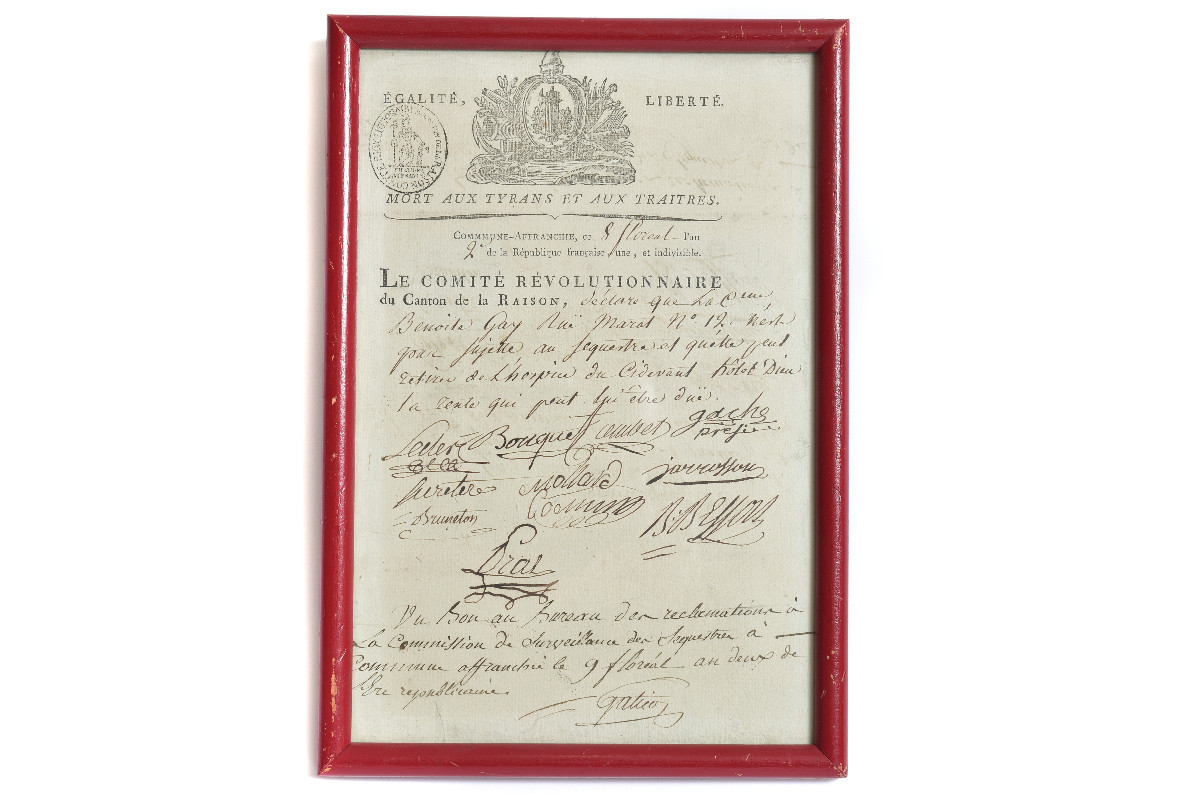 ÉGALITÉ, LIBERTÉ.
MORT AUX TYRANS ET AUX TRAITRES.
COMMMUNE-AFFRANCHIE, ce 8 floreal l'an
2e de la République française, une, et indivisible.
LE COMITÉ RÉVOLUTIONNAIRE
du Canton de la RAISON, déclare que La Cenne
Benoite Gay Ruë Marat No 12. n'est
pas sujette au sequestre et quelle peut
retirer de L'hospice du Cidevant hôtel Dieu
la rente qui peut lui être duë.
Leclerc Bouquet gache
présid
Secretere Mollard jarrosson
Bruneton
Prat
Vu Bon au Bureau des reclamations à
La Commission de Surveillance des Sequestres à
Commune affranchie le 9 floréal an deux de
l'Ere republicaine